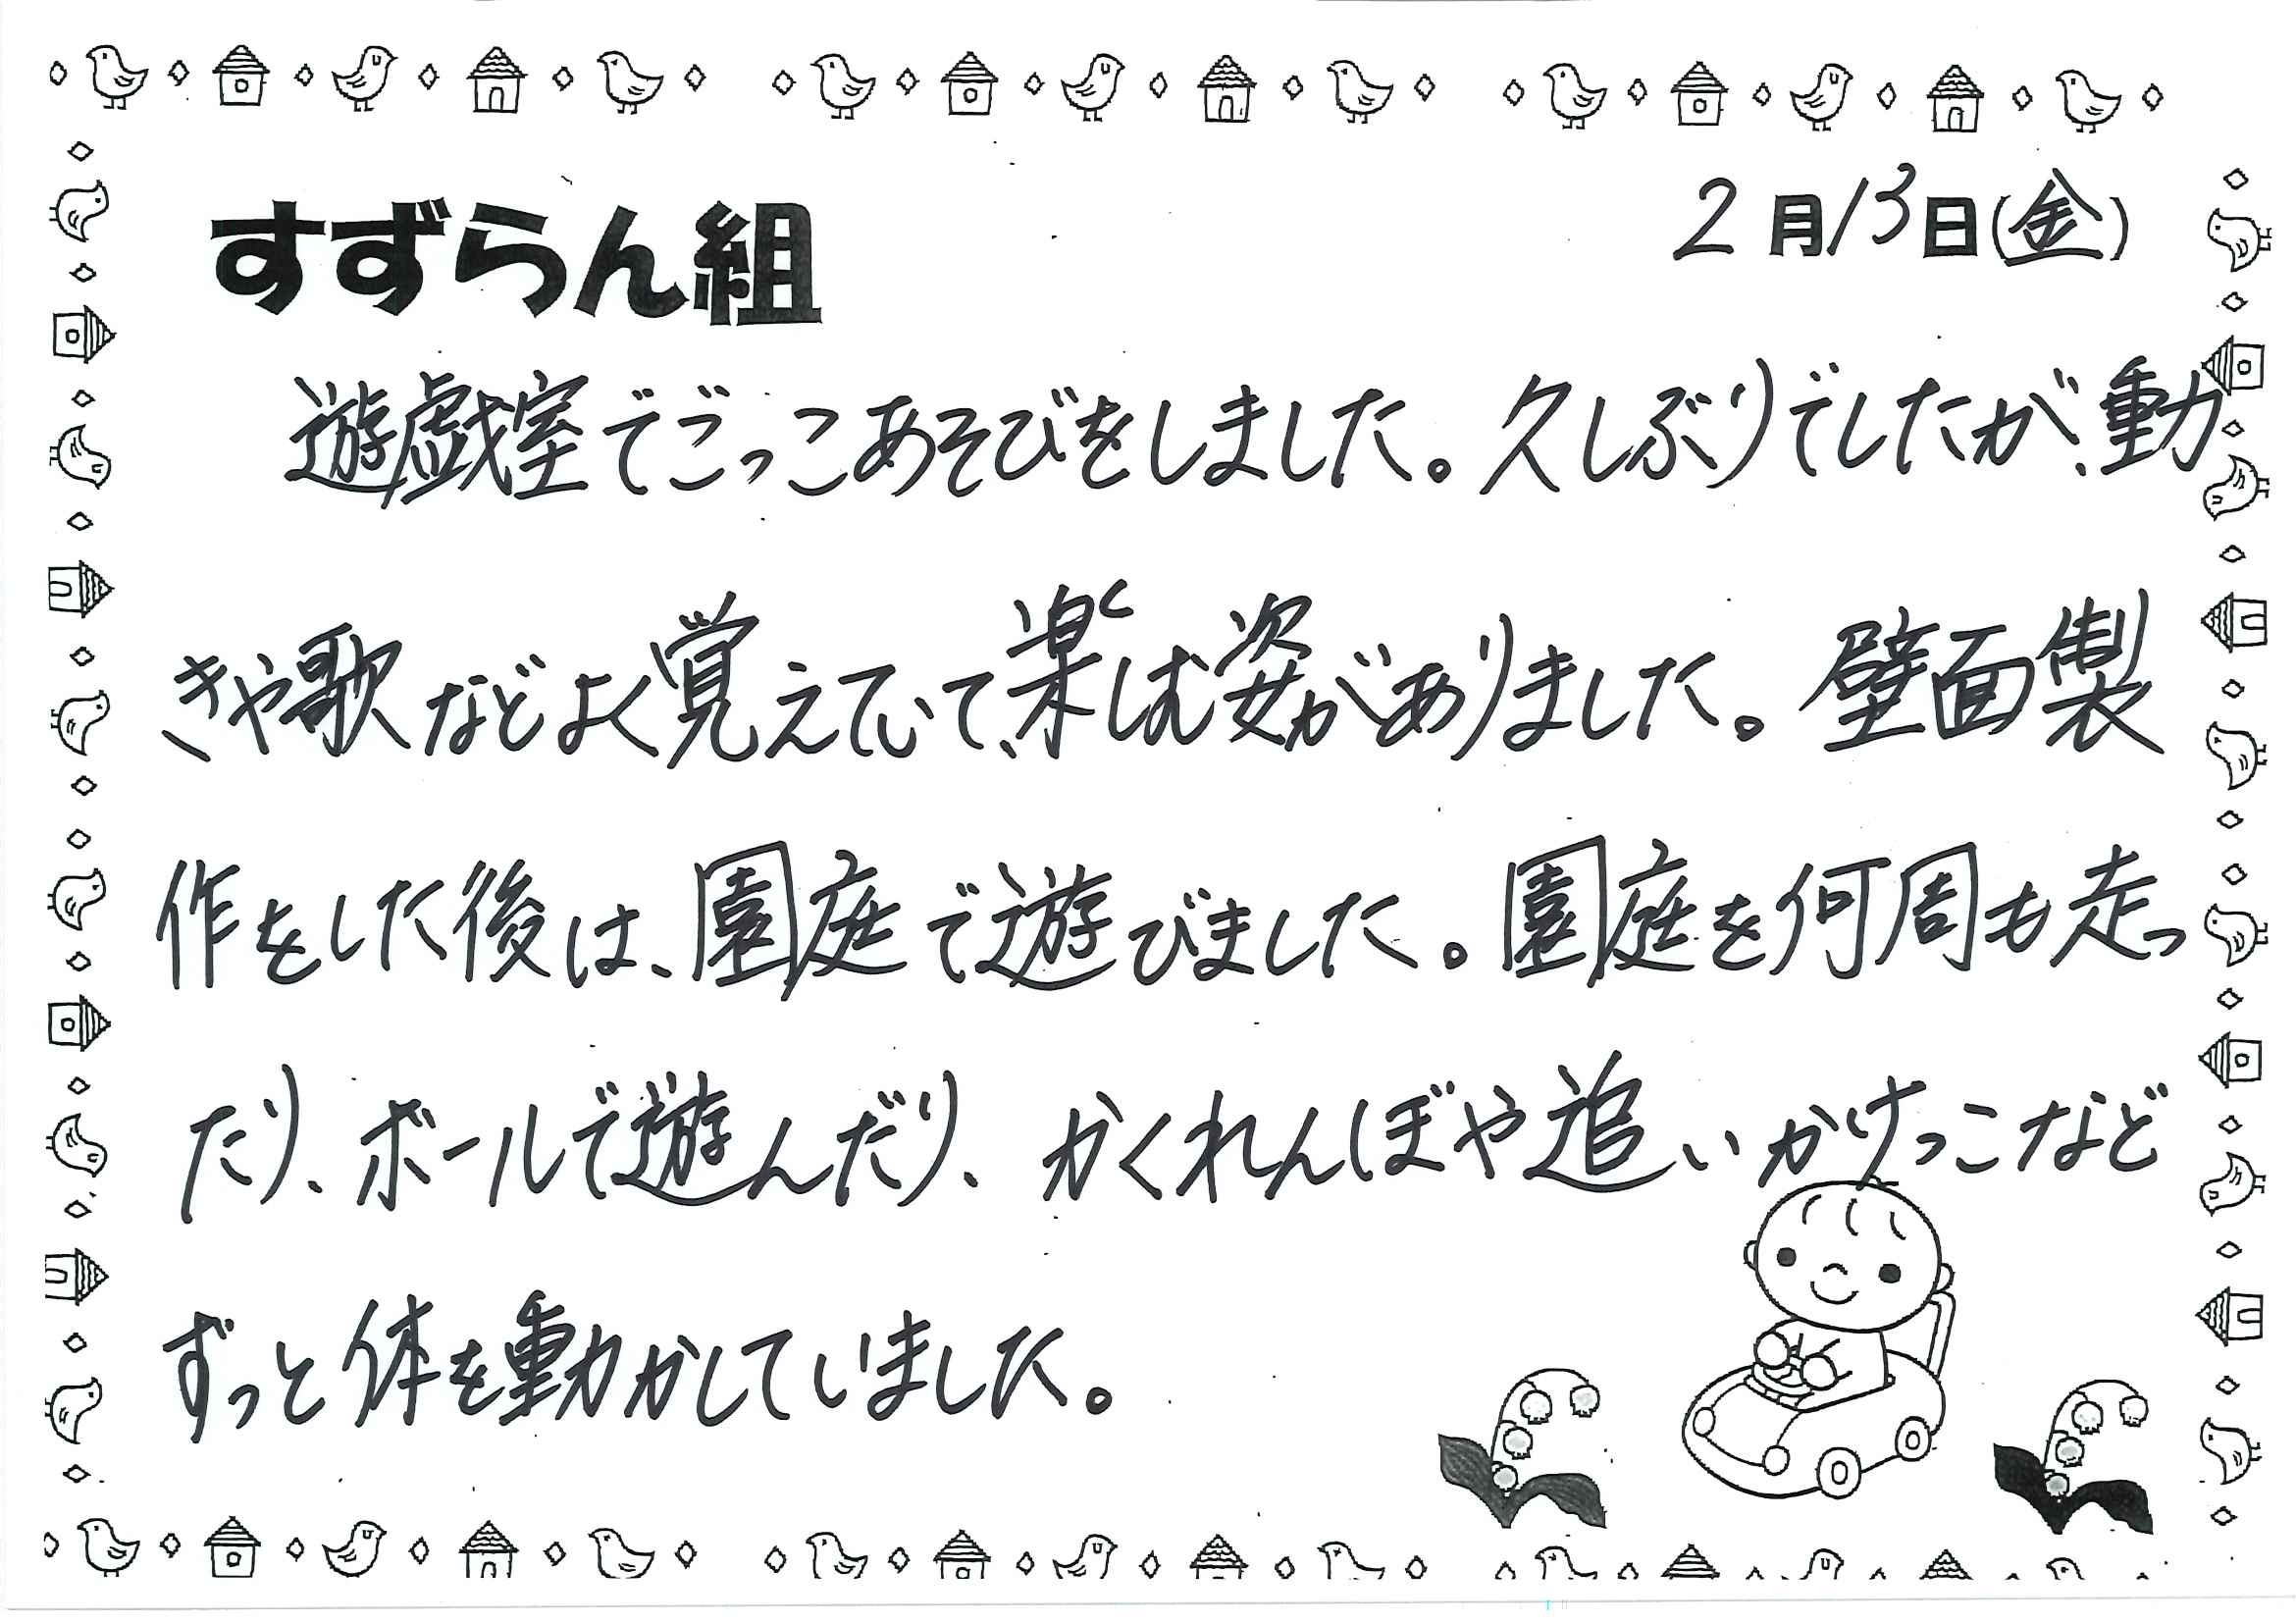 すずらん組
2月13日(金)
遊戯室でごっこあそびをしました。久しぶりでしたが、動
きや歌などよく覚えていて、楽しむ姿がありました。壁面製
作をした後は、園庭で遊びました。園庭を何周も走っ
たり、ボールで遊んだり、かくれんぼや追いかけっこなど
ずっと体を動かしていました。